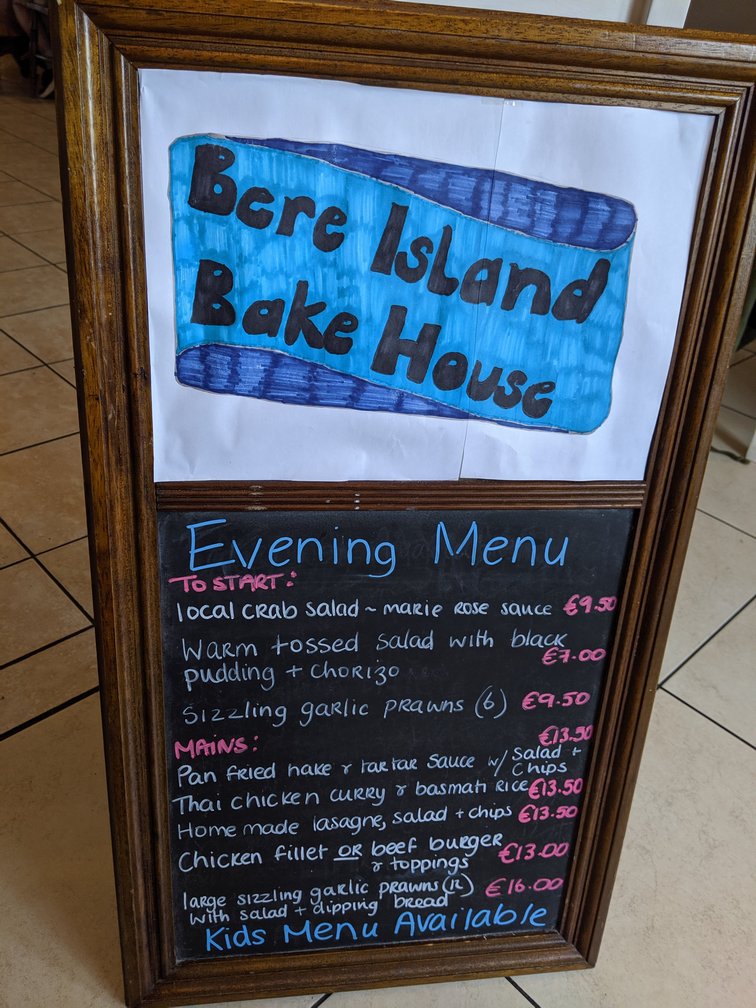 Bere Island
Bake House
Evening Menu
TO START:
local crab salad ~ marie rose sauce €9.50
Warm tossed salad with black
pudding + chorizo €7.00
Sizzling garlic prawns (6) €9.50
MAINS:
Pan fried hake & tartar sauce w/ salad +
chips €13.50
Thai chicken curry & basmati rice €13.50
Home made lasagne, salad + chips €13.50
Chicken fillet OR beef burger
& toppings €13.00
large sizzling garlic prawns (12) €16.00
with salad + dipping bread
Kids Menu Available